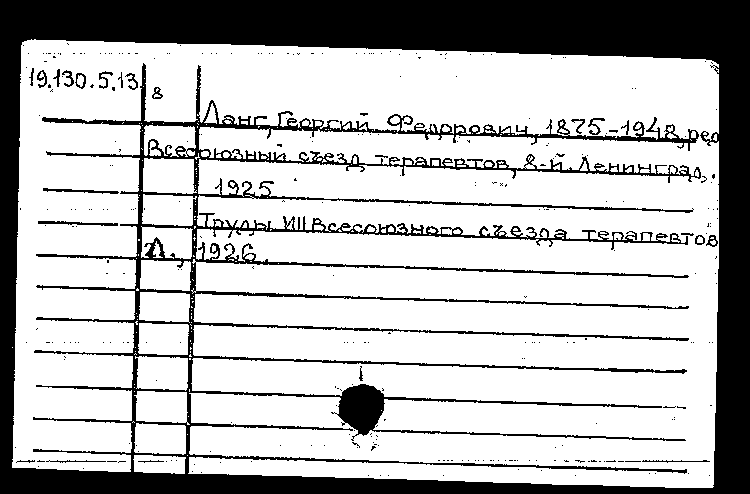 19.130.5.13. 8
Ланг, Георгий Федорович, 1875-1948, ред.
Всесоюзный съезд терапевтов, 8-й. Ленинград.
1925
Труды VIII Всесоюзного съезда терапевтов
Л., 1926.